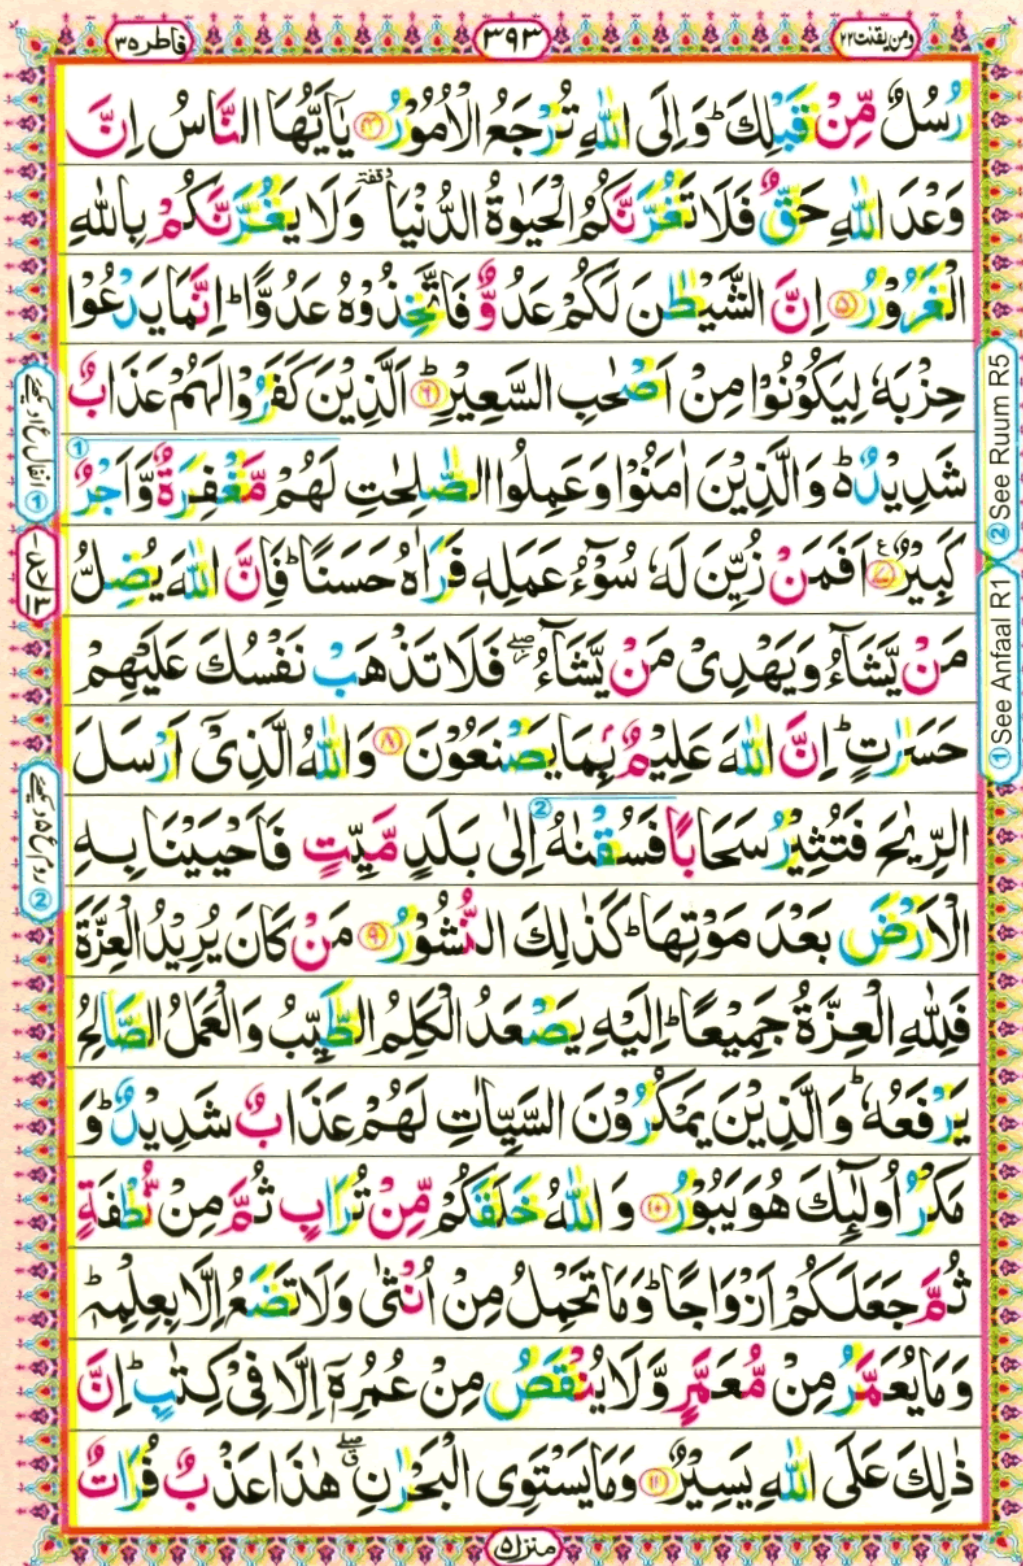 ومن یقنت ۲۲
۳۹۳
فاطر ۳۵
رُسُلٌ مِّنْ قَبْلِكَ ؕ وَاِلَى اللّٰهِ تُرْجَعُ الْاُمُوْرُ ﴿۴﴾ يٰۤاَيُّهَا النَّاسُ اِنَّ
وَعْدَ اللّٰهِ حَقٌّ فَلَا تَغُرَّنَّكُمُ الْحَيٰوةُ الدُّنْيَا ٝ وقفة وَلَا يَغُرَّنَّكُمْ بِاللّٰهِ
الْغَرُوْرُ ﴿۵﴾ اِنَّ الشَّيْطٰنَ لَكُمْ عَدُوٌّ فَاتَّخِذُوْهُ عَدُوًّا ؕ اِنَّمَا يَدْعُوْا
حِزْبَهٗ لِيَكُوْنُوْا مِنْ اَصْحٰبِ السَّعِيْرِ ﴿۶﴾ؕ اَلَّذِيْنَ كَفَرُوْا لَهُمْ عَذَابٌ
شَدِيْدٌ ؕ۬ وَالَّذِيْنَ اٰمَنُوْا وَعَمِلُوا الصّٰلِحٰتِ لَهُمْ مَّغْفِرَةٌ وَّاَجْرٌ ①
كَبِيْرٌ ﴿۷﴾ع اَفَمَنْ زُيِّنَ لَهٗ سُوْٓءُ عَمَلِهٖ فَرَاٰهُ حَسَنًا ؕ فَاِنَّ اللّٰهَ يُضِلُّ
مَنْ يَّشَآءُ وَيَهْدِىْ مَنْ يَّشَآءُ ۖ فَلَا تَذْهَبْ نَفْسُكَ عَلَيْهِمْ
حَسَرٰتٍ ؕ اِنَّ اللّٰهَ عَلِيْمٌۢ بِمَا يَصْنَعُوْنَ ﴿۸﴾ وَاللّٰهُ الَّذِىْۤ اَرْسَلَ
الرِّيٰحَ فَتُثِيْرُ سَحَابًا فَسُقْنٰهُ ② اِلٰى بَلَدٍ مَّيِّتٍ فَاَحْيَيْنَا بِهِ
الْاَرْضَ بَعْدَ مَوْتِهَا ؕ كَذٰلِكَ النُّشُوْرُ ﴿۹﴾ مَنْ كَانَ يُرِيْدُ الْعِزَّةَ
فَلِلّٰهِ الْعِزَّةُ جَمِيْعًا ؕ اِلَيْهِ يَصْعَدُ الْكَلِمُ الطَّيِّبُ وَالْعَمَلُ الصَّالِحُ
يَرْفَعُهٗ ؕ وَالَّذِيْنَ يَمْكُرُوْنَ السَّيِّاٰتِ لَهُمْ عَذَابٌ شَدِيْدٌ ؕ وَ
مَكْرُ اُولٰٓئِكَ هُوَ يَبُوْرُ ﴿۱۰﴾ وَ اللّٰهُ خَلَقَكُمْ مِّنْ تُرَابٍ ثُمَّ مِنْ نُّطْفَةٍ
ثُمَّ جَعَلَكُمْ اَزْوَاجًا ؕ وَمَا تَحْمِلُ مِنْ اُنْثٰى وَلَا تَضَعُ اِلَّا بِعِلْمِهٖ ؕ
وَمَا يُعَمَّرُ مِنْ مُّعَمَّرٍ وَّلَا يُنْقَصُ مِنْ عُمُرِهٖۤ اِلَّا فِىْ كِتٰبٍ ؕ اِنَّ
ذٰلِكَ عَلَى اللّٰهِ يَسِيْرٌ ﴿۱۱﴾ وَمَا يَسْتَوِى الْبَحْرٰنِ ۖ هٰذَا عَذْبٌ فُرَاتٌ
② See Ruum R5
① See Anfaal R1
① انفال ع ۱ دیکھئے
② روم ع ۵ دیکھئے
منزل ۵